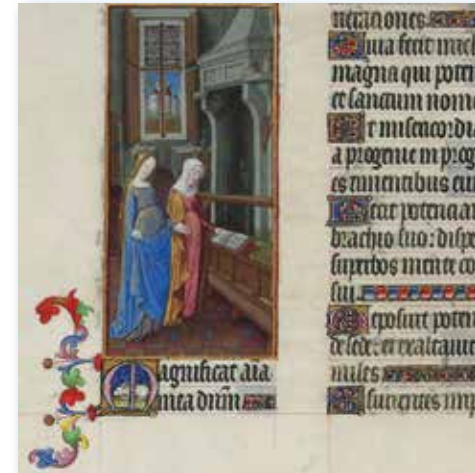 Magnificat aīa
mea dnm̄
neraciones
Quia fecit mich
magna qui poten
et sanctum nom
Et misericordia
a progenie in prog
es timentibus eu
Fecit potenciam
brachio suo: dispe
superbos mente co
sui.
Deposuit poten
de sede: et exaltauit
miles
Esurientes imp